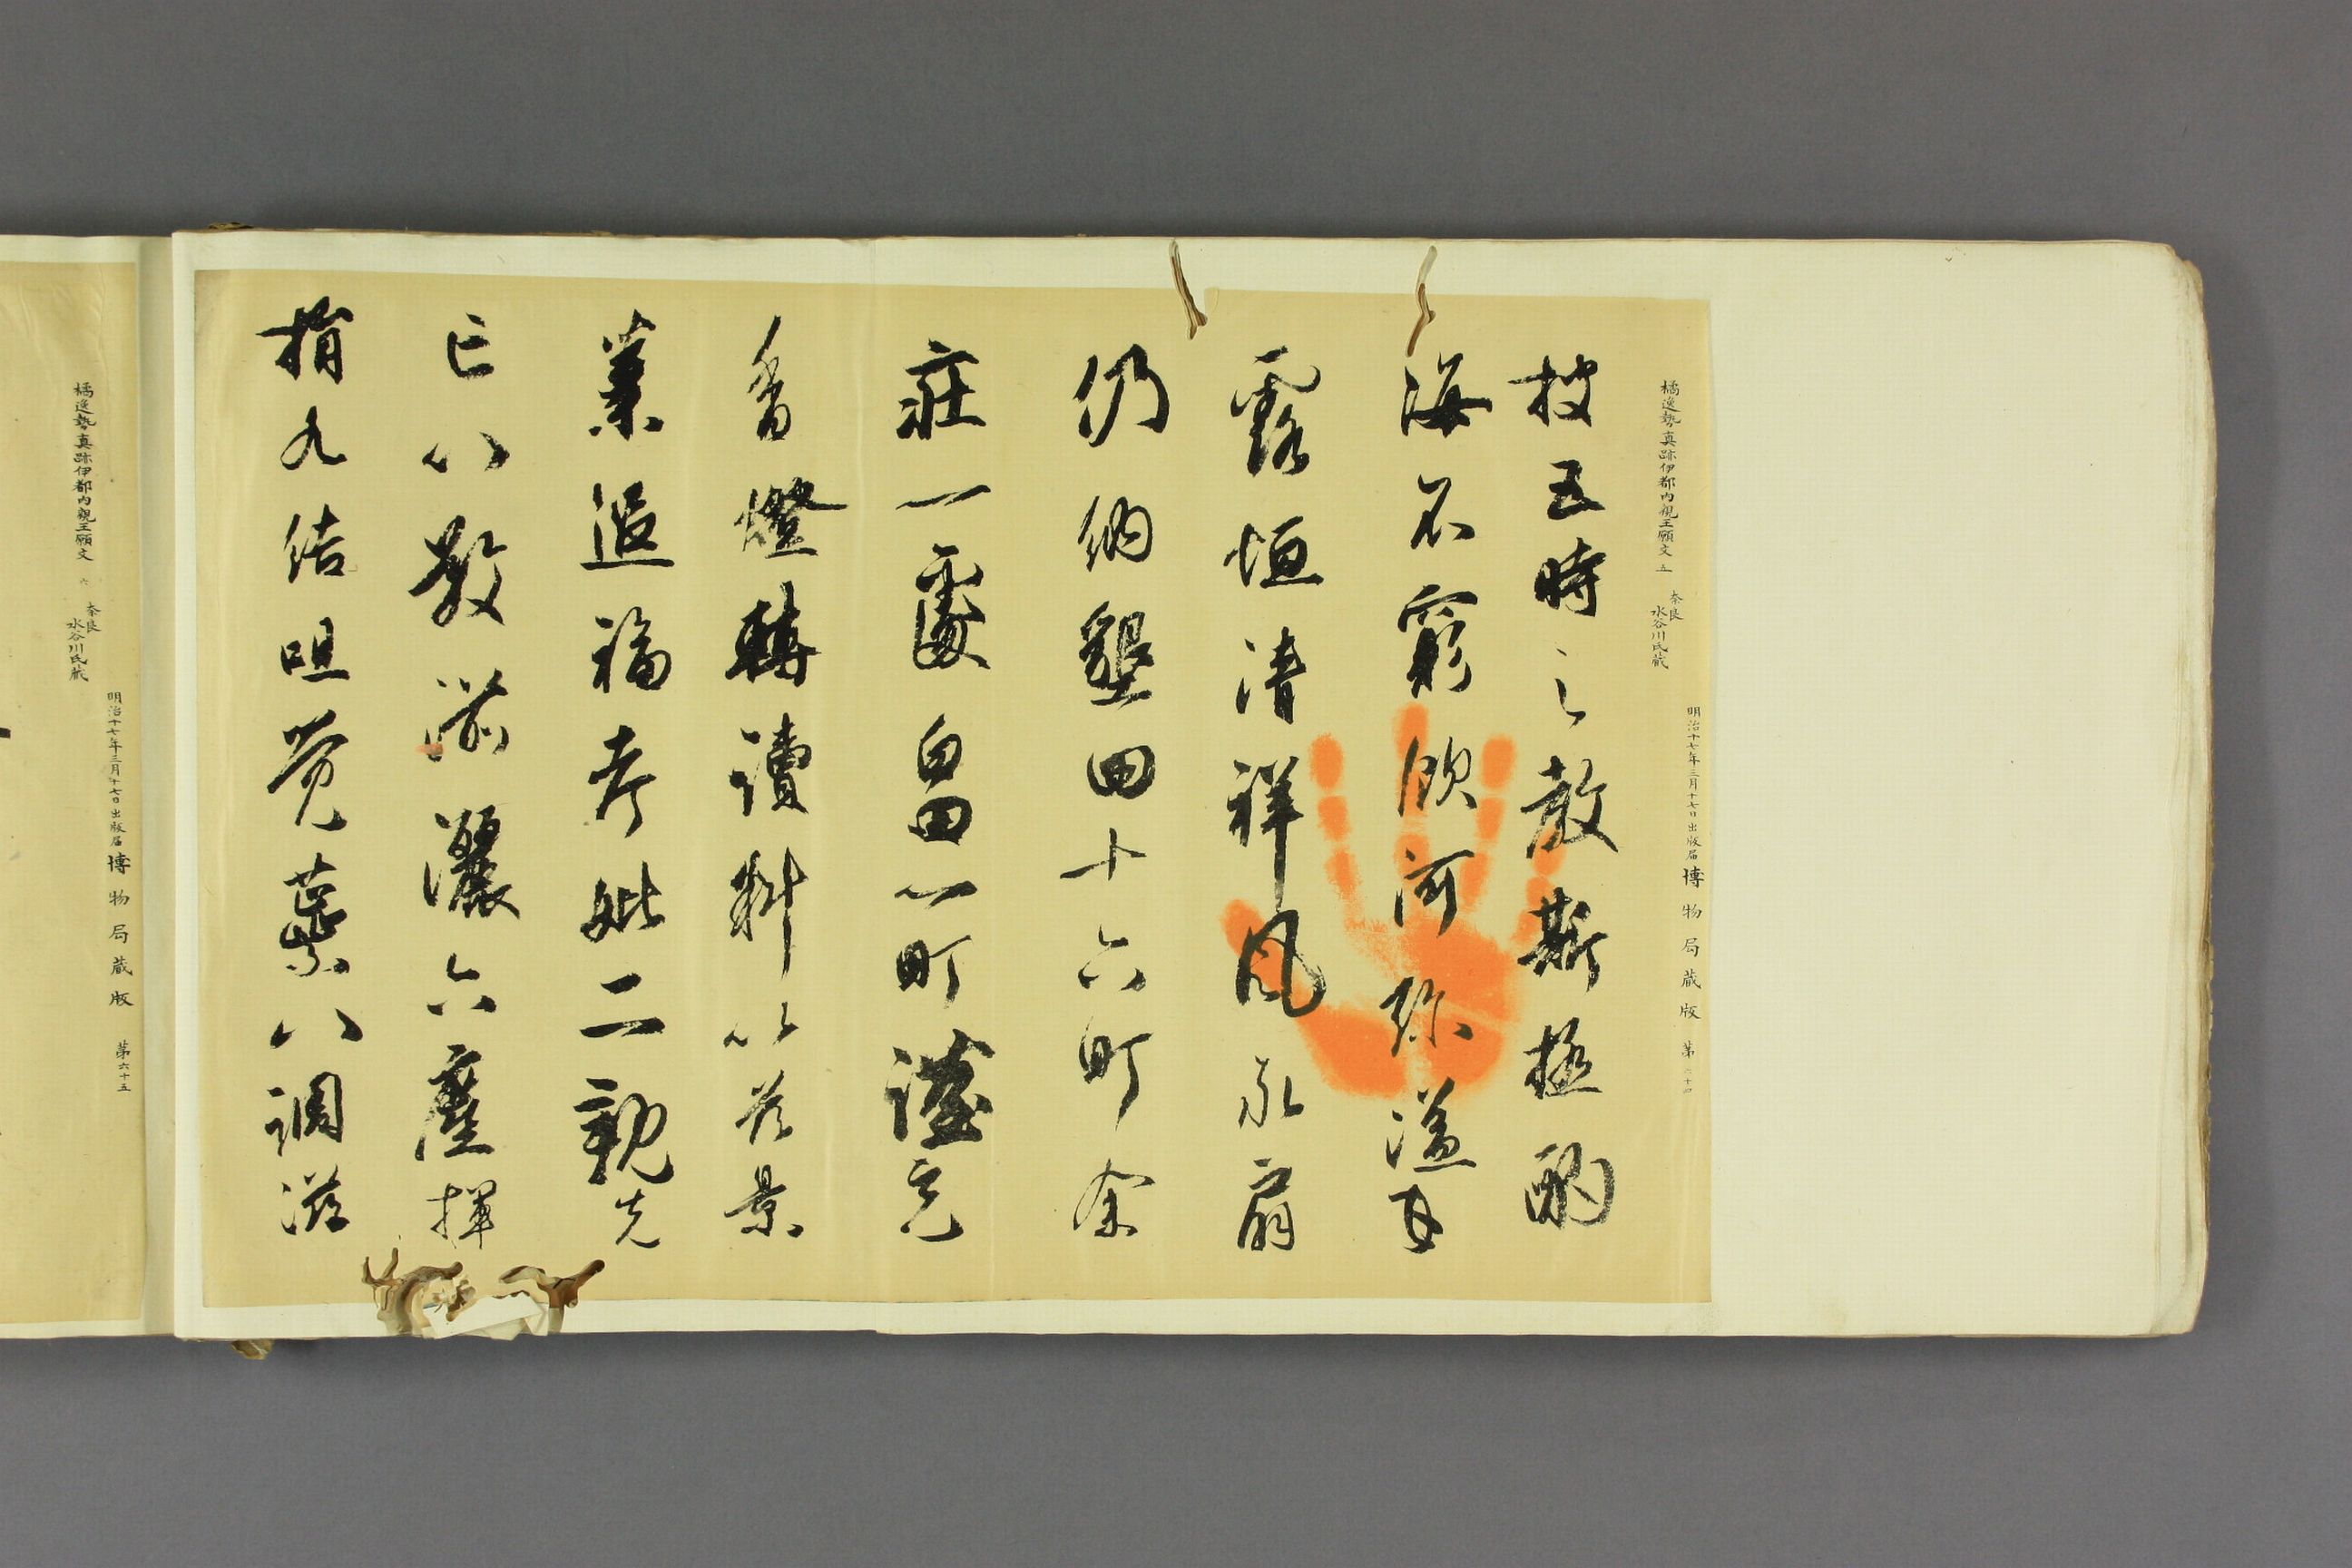 橘逸勢真跡伊都内親王願文 五
奈良
水谷川氏蔵
明治十七年三月十七日出版届 博物局蔵版 第六十四
披五時之教斯極酌
海不窮飲河弥溢
露垣清祥風永扇
仍納墾田十六町余
荘一處畠一町謹充
香燈転讀料以茲景
業追福考妣二親先
亡以數滌灑六塵揮
捐九結咀覺蘂以調滋
橘逸勢真跡伊都内親王願文 六
奈良
水谷川氏蔵
明治十七年三月十七日出版届 博物局蔵版 第六十五